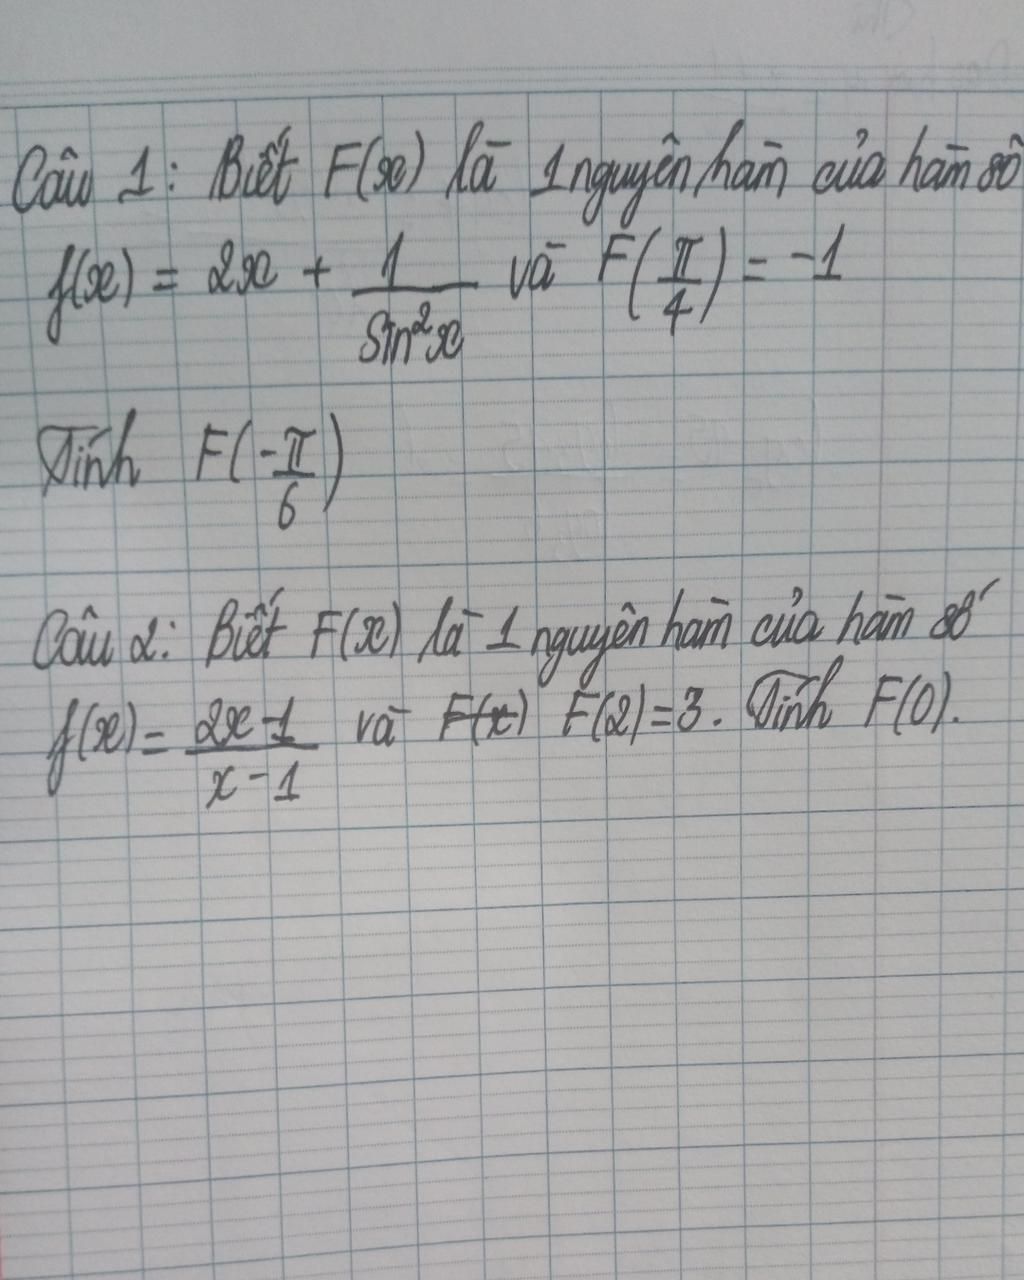 Câu 1: Biết F(x) là 1 nguyên hàm của hàm số
f(x) = 2x + 1/sin²x và F(π/4) = -1
Tính F(-π/6)
Câu 2: Biết F(x) là 1 nguyên hàm của hàm số
f(x) = (2x-1)/(x-1) và F(x) F(2)=3. Tính F(0).